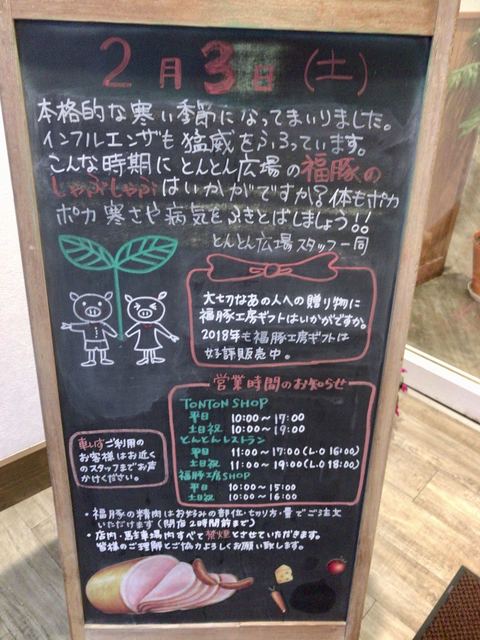 2月3日(土)
本格的な寒い季節になってまいりました。
インフルエンザも猛威をふるっています。
こんな時期にとんとん広場の福豚の
しゃぶしゃぶはいかがですか?体もポカ
ポカ寒さや病気をふきとばしましょう!!
とんとん広場スタッフ一同
大切なあの人への贈り物に
福豚工房ギフトはいかがですか。
2018年も福豚工房ギフトは
好評販売中。
営業時間のお知らせ
TONTON SHOP
平日 10:00〜17:00
土日祝 10:00〜19:00
とんとんレストラン
平日 11:00〜17:00(L・O 16:00)
土日祝 11:00〜19:00(L.O 18:00)
福豚工房SHOP
平日 10:00〜15:00
土日祝 10:00〜16:00
車いすご利用の
お客様はお近く
のスタッフまでお声
かけください。
・福豚の精肉はお好みの部位・切り方・量でご注文
いただけます(閉店2時間前まで)
・店内・駐車場内すべて禁煙とさせていただきます。
皆様のご理解とご協力よろしくお願い致します。